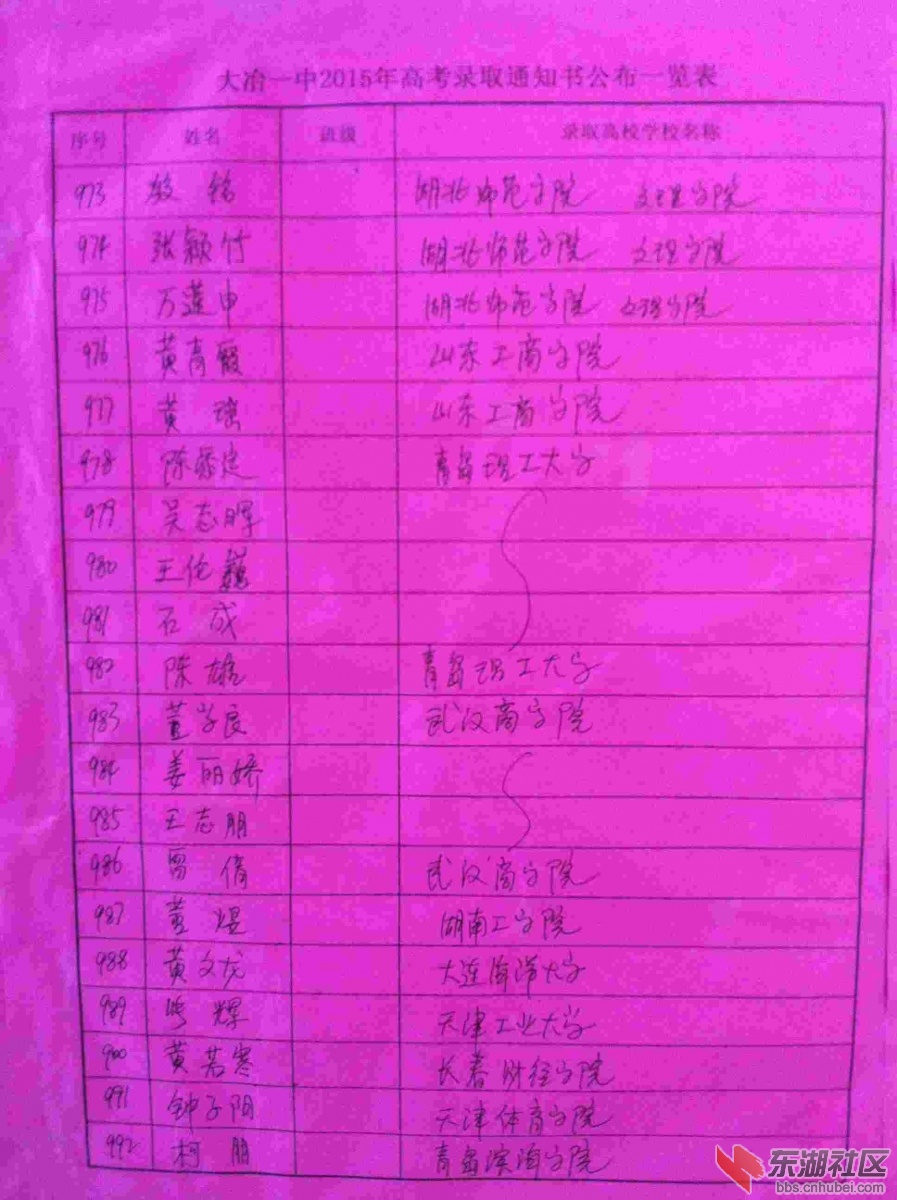 大冶一中2015年高考录取通知书公布一览表
序号 姓名 班级 录取高校学校名称
973 湖北师范学院 文理学院
974 张颖竹 湖北师范学院 文理学院
975 万莲申 湖北师范学院 文理学院
976 黄青霞 山东工商学院
977 黄璃 山东工商学院
978 陈 青岛理工大学
979 吴志晖
980 王伦巍
981 石成
982 陈雄 青岛理工大学
983 董学良 武汉商学院
984 姜丽娇
985 王志朋
986 倩 武汉商学院
987 董煜 湖南工学院
988 黄文龙 大连海洋大学
989 辉 天津工业大学
990 黄若寒 长春财经学院
991 钟子阳 天津体育学院
992 柯朋 青岛滨海学院
东湖社区
bbs.cnhubei.com